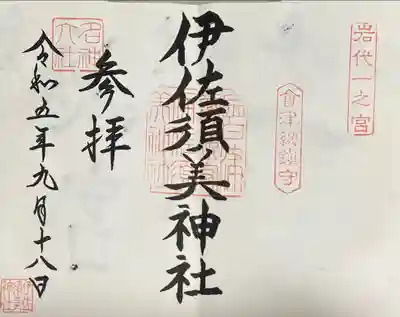 岩代一之宮
會津総鎮守
伊佐須美神社
参拝
名神大社
令和五年九月十八日